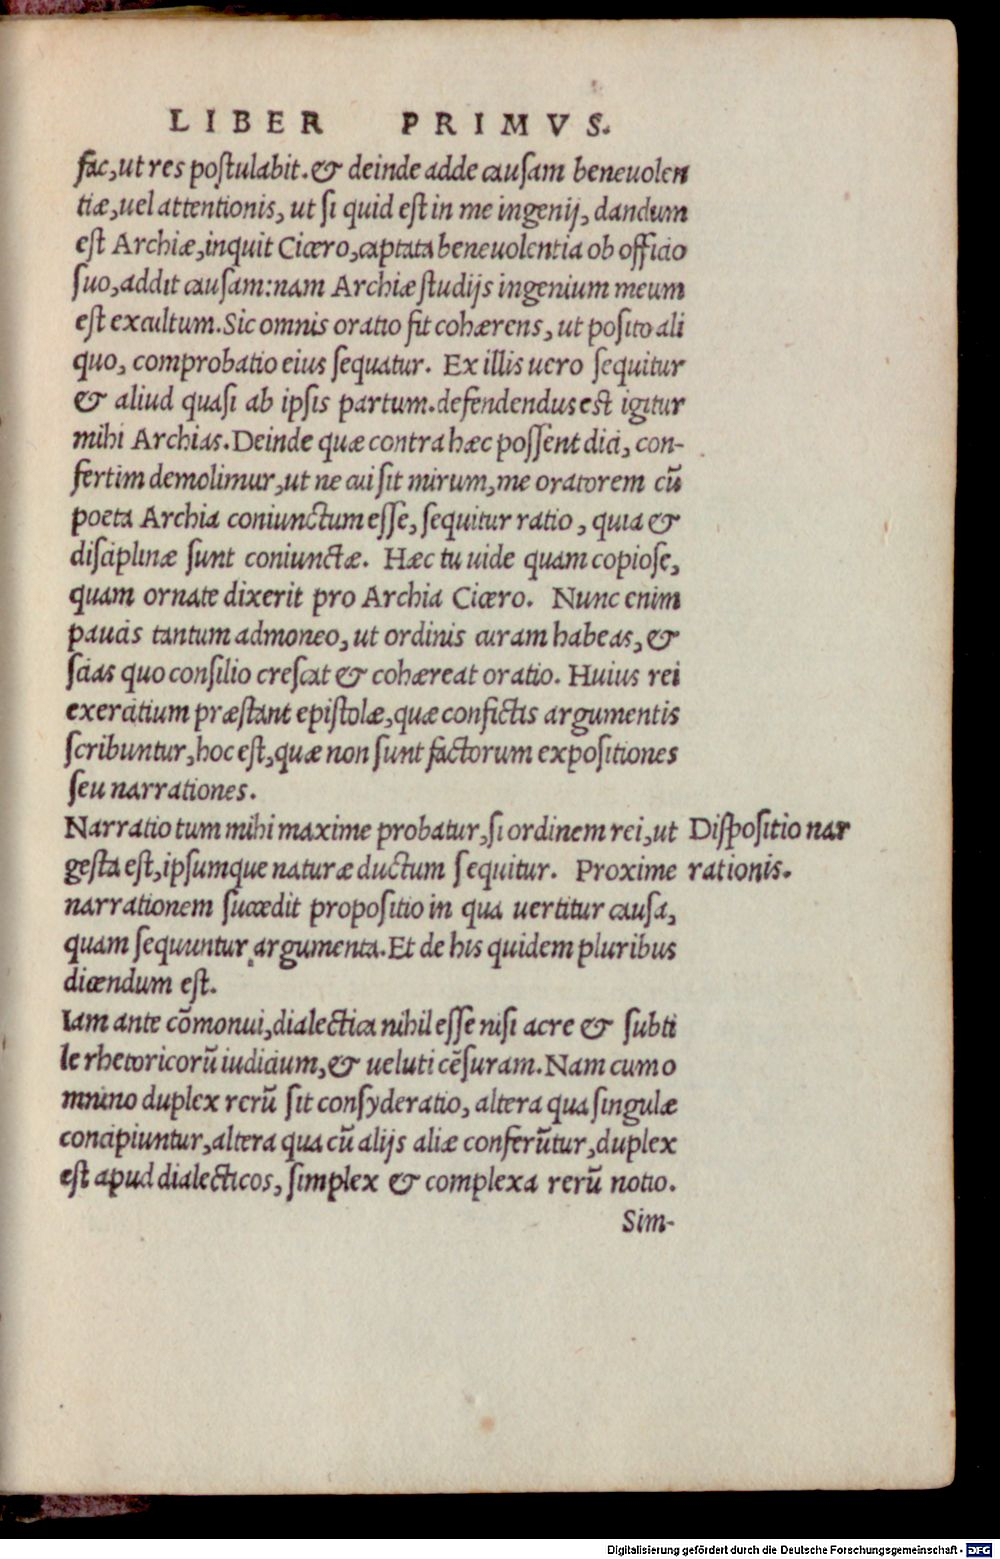 LIBER PRIMVS.
fac, ut res postulabit. & deinde adde causam beneuolen
tiæ, uel attentionis, ut si quid est in me ingenij, dandum
est Archiæ, inquit Cicero, captata beneuolentia ob officio
suo, addit causam: nam Archiæ studijs ingenium meum
est excultum. Sic omnis oratio fit cohærens, ut posito ali
quo, comprobatio eius sequatur. Ex illis uero sequitur
& aliud quasi ab ipsis partum. defendendus est igitur
mihi Archias. Deinde quæ contra hæc possent dici, con-
fertim demolimur, ut ne cui sit mirum, me oratorem cū
poeta Archia coniunctum esse, sequitur ratio, quia &
disciplinæ sunt coniunctæ. Hæc tu uide quam copiose,
quam ornate dixerit pro Archia Cicero. Nunc enim
paucis tantum admoneo, ut ordinis curam habeas, &
scias quo consilio crescat & cohæreat oratio. Huius rei
exercitium præstant epistolæ, quæ confictis argumentis
scribuntur, hoc est, quæ non sunt factorum expositiones
seu narrationes.
Narratio tum mihi maxime probatur, si ordinem rei, ut
Dispositio nar
gesta est, ipsumque naturæ ductum sequitur. Proxime
rationis.
narrationem succedit propositio in qua uertitur causa,
quam sequuntur argumenta. Et de his quidem pluribus
dicendum est.
Iam ante cōmonui, dialectica nihil esse nisi acre & subti
le rhetoricorū iudicium, & ueluti cēsuram. Nam cum o
mnino duplex rerū sit consyderatio, altera qua singulæ
concipiuntur, altera qua cū alijs aliæ conferūtur, duplex
est apud dialecticos, simplex & complexa rerū notio.
Sim-
Digitalisierung gefördert durch die Deutsche Forschungsgemeinschaft - DFG